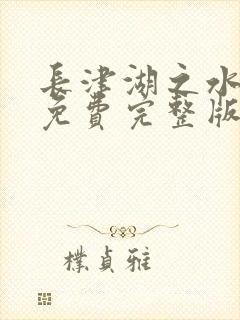 長津湖之水
免費完整版
樸貞雅